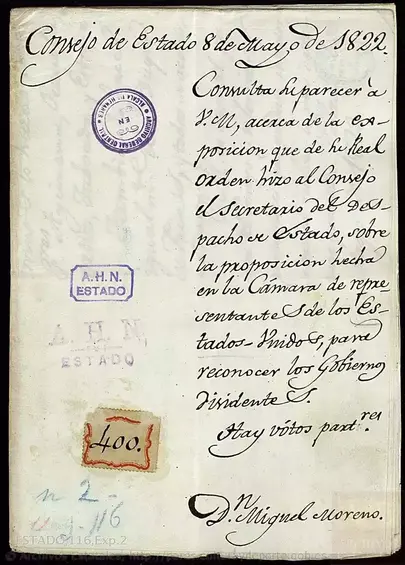 Consejo de Estado 8 de Mayo de 1822.
Consulta su parecer à
V.M, acerca de la ex-
posicion que de su Real
orden hizo al Consejo
el Secretario del Des-
pacho de Estado, sobre
la proposicion hecha
en la Camara de repre-
sentantes de los Es-
tados-Unidos, para
reconocer los Gobiernos
disidentes.
Hay votos part.res
D.n Miguel Moreno.
ARCHIVO GENERAL CENTRAL
EN
ALCALA DE HENARES
A.H.N.
ESTADO
A. H. N.
ESTADO
400.
n 2-
116
ESTADO,116,Exp.2